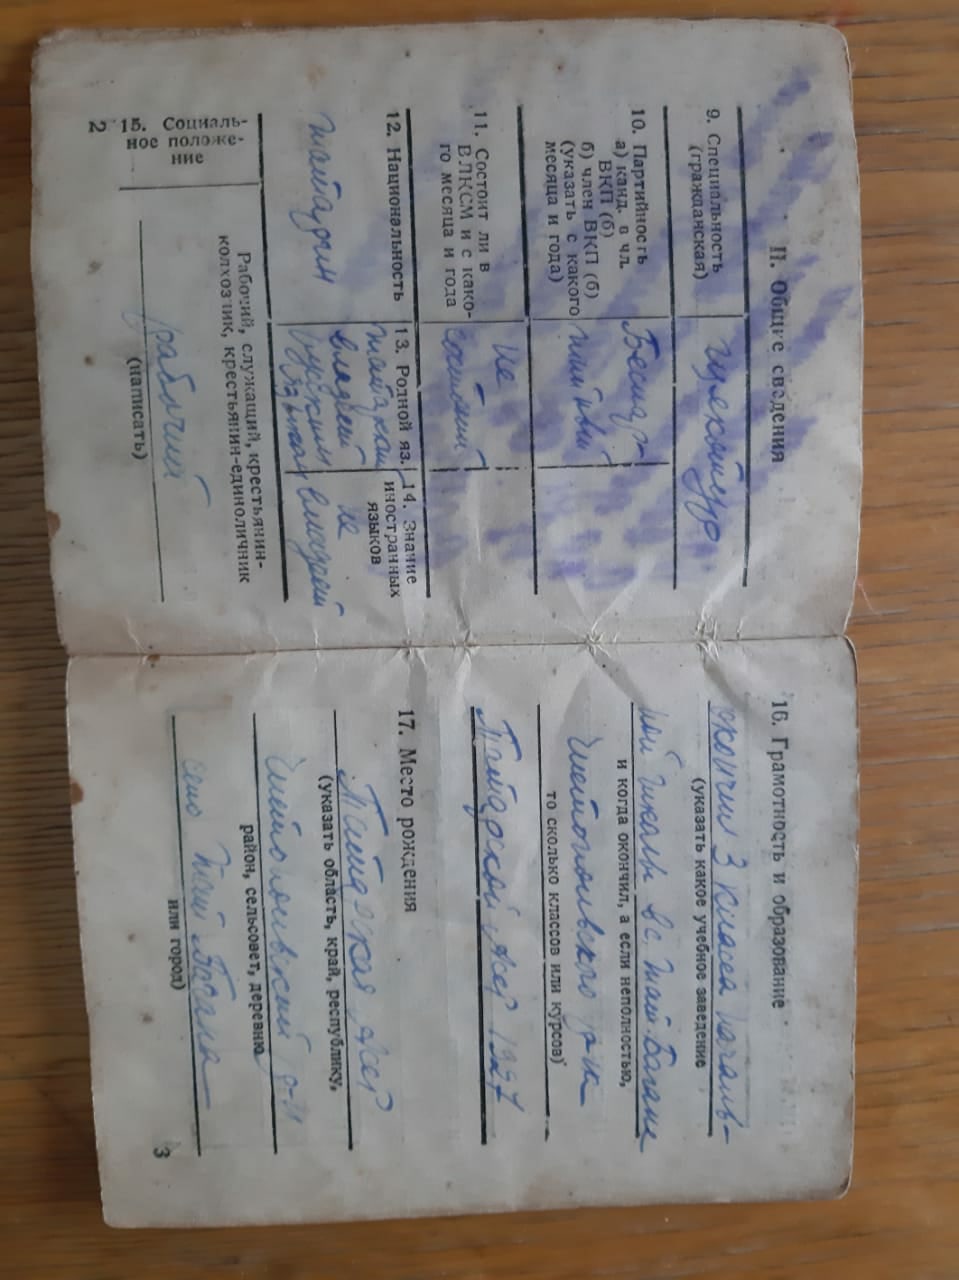 II. Общие сведения
9. Специальность
(гражданская)
10. Партийность
а) канд. в чл.
ВКП (б)
б) член ВКП (б)
(указать с какого
месяца и года)
Беспар-
тийный
11. Состоит ли в
ВЛКСМ и с како-
го месяца и года
не
состоит
12. Национальность
13. Родной яз.
владеет
русским
14. Знание
иностранных
языков
не
владеет
15. Социаль-
ное положе-
ние
Рабочий, служащий, крестьянин-
колхозник, крестьянин-единоличник
рабочий
(написать)
2
16. Грамотность и образование
окончил 3 класса началь-
(указать какое учебное заведение
ной школы в с.
и когда окончил, а если неполностью,
то сколько классов или курсов)
Татарской АССР 1927
17. Место рождения
Татарская АССР
(указать область, край, республику,
р-н
район, сельсовет, деревню
село
или город)
3